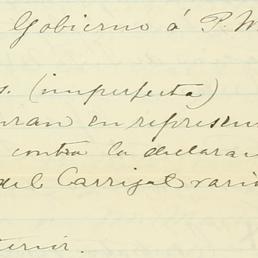 Gobierno á P. M
s. (imperfecta)
en represen
contra la declara
del Carrizal vari
terir.